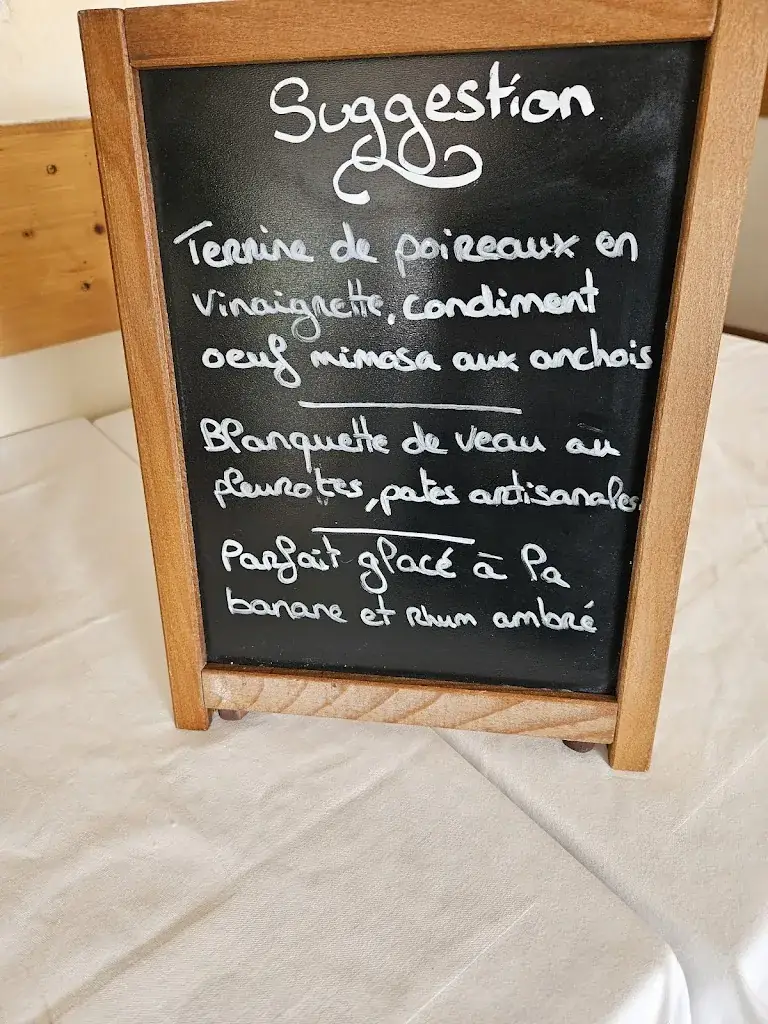 Suggestion
Terrine de poireaux en
vinaigrette, condiment
oeuf mimosa aux anchois
Blanquette de veau au
pleurotes, pates artisanales
Parfait glacé à la
banane et rhum ambré